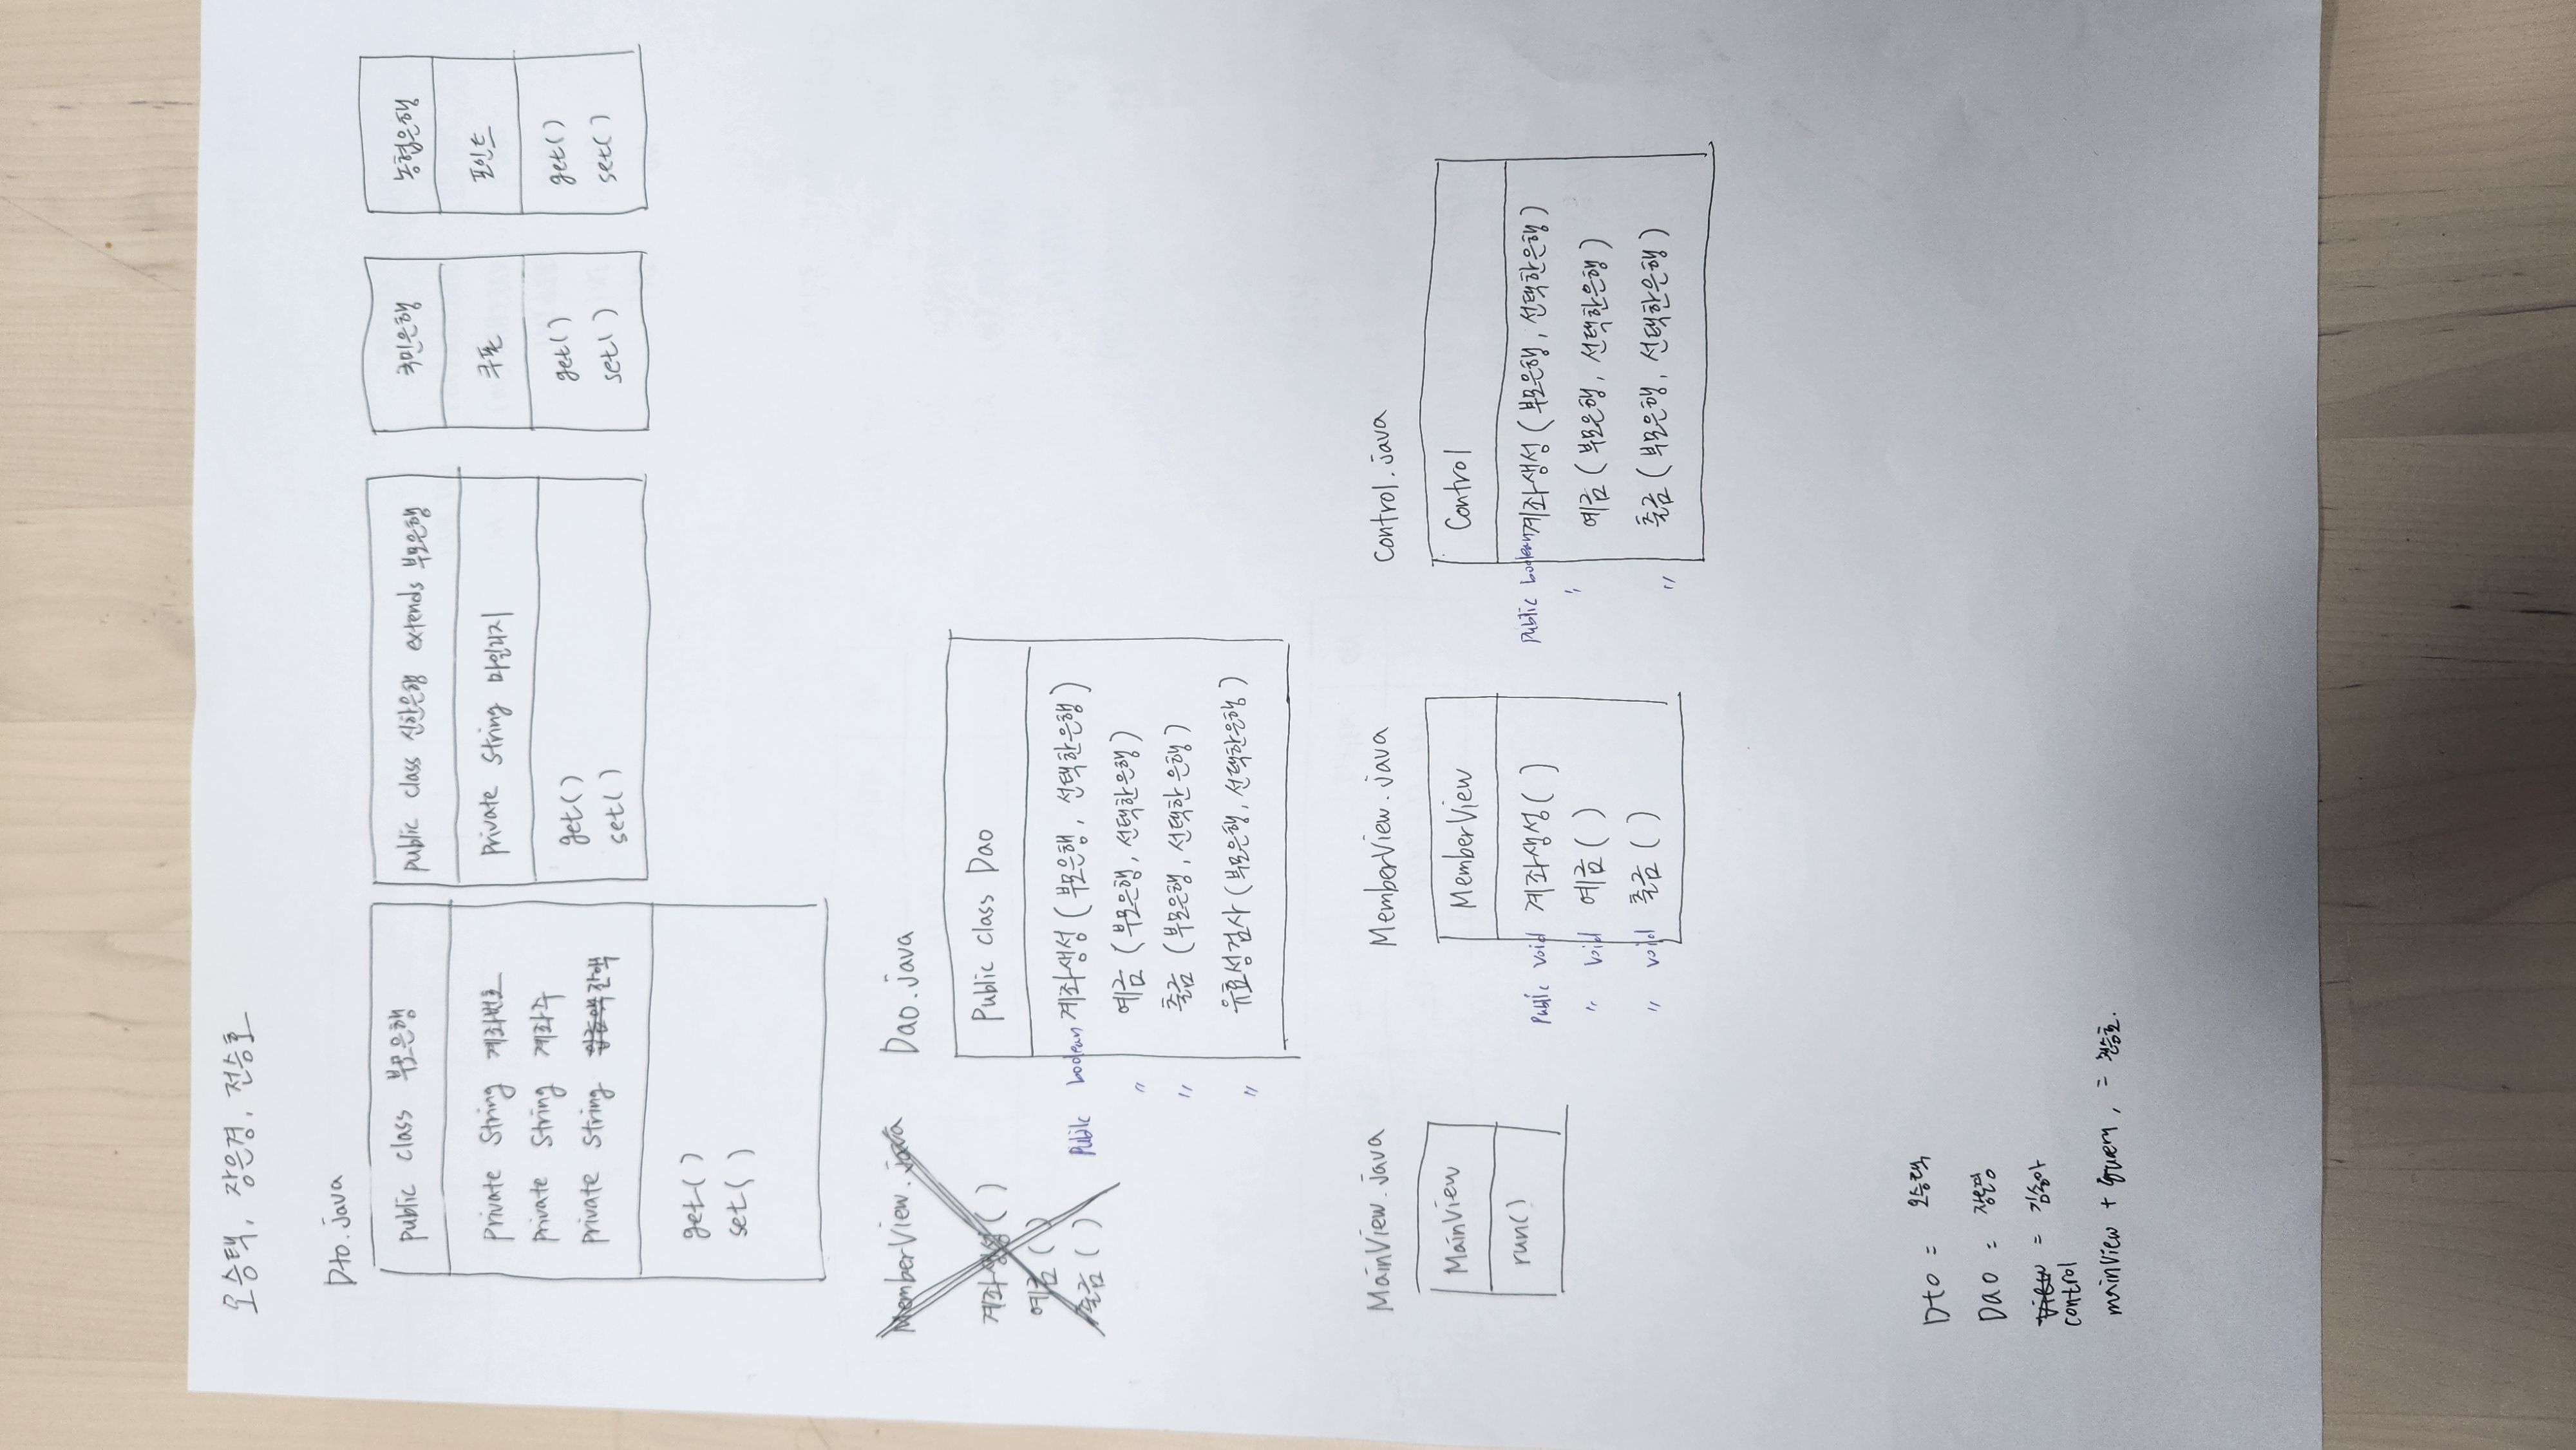 오승택, 장은경, 전승호
Dto.java
public class 부모은행
private String 계좌번호
private String 계좌주
private String 입금액 잔액
get( )
set( )
public class 신한은행 extends 부모은행
private String 마일리지
get( )
set( )
국민은행
쿠폰
get( )
set( )
농협은행
포인트
get( )
set( )
MemberView.java
계좌생성( )
예금( )
출금( )
Dao.java
Public class Dao
Public boolean 계좌생성(부모은행, 선택한은행)
" 예금(부모은행, 선택한은행)
" 출금(부모은행, 선택한은행)
" 유효성검사(부모은행, 선택한은행)
MainView.java
MainView
run()
MemberView.java
MemberView
Public void 계좌생성( )
" void 예금( )
" void 출금( )
Control.java
Control
Public boolean 계좌생성(부모은행, 선택한은행)
" 예금(부모은행, 선택한은행)
" 출금(부모은행, 선택한은행)
Dto = 오승택
Dao = 장은경
view = 김송아
control
mainView + query, = 전승호.